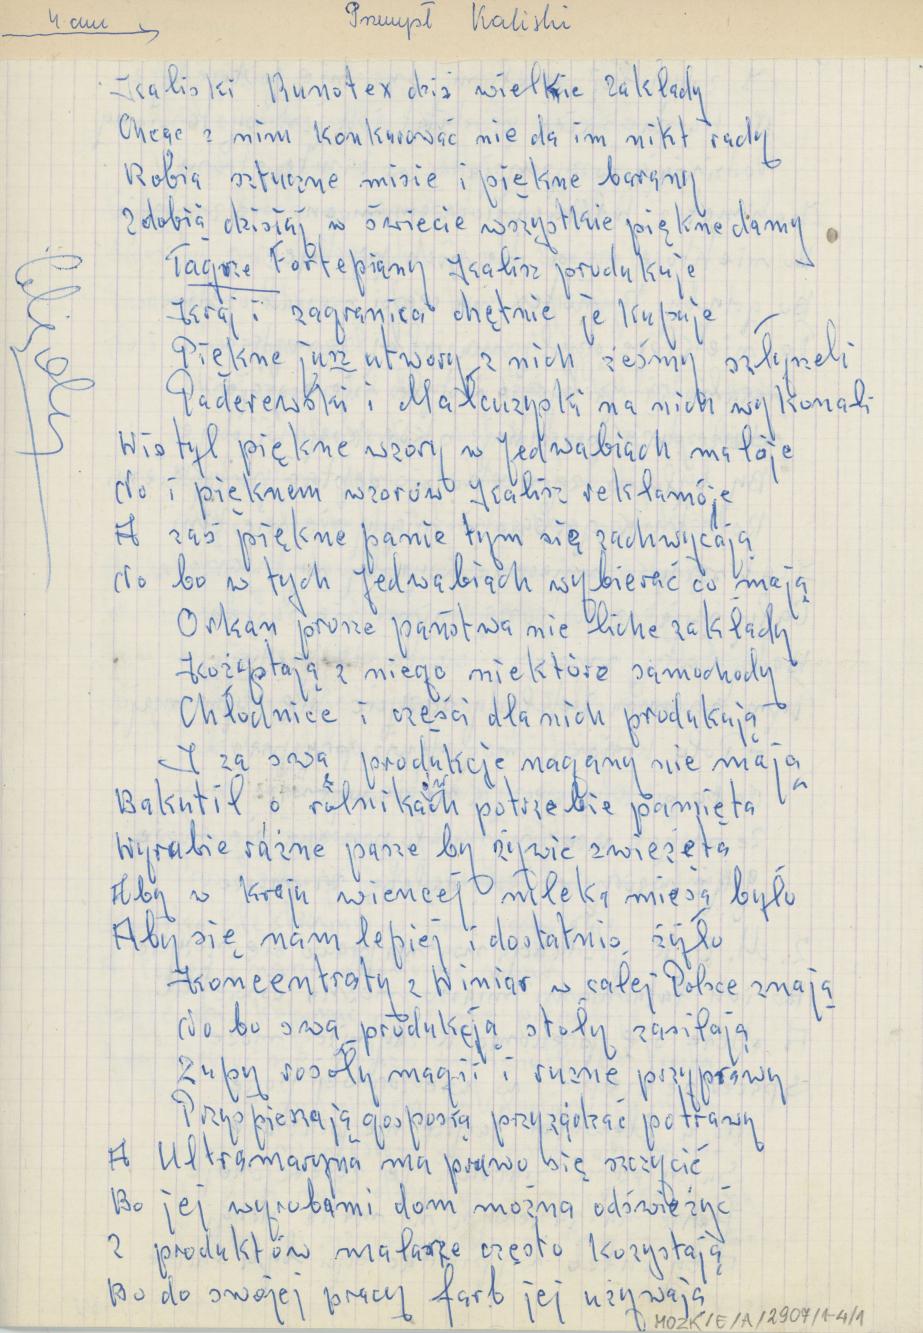 Przemysł Kaliski
Kaliski Runotex dziś wielkie zakłady
Chcąc z nim konkurować nie da im nikt rady
Robią sztuczne misie i piękne barany
Zdobią dzisiaj w świecie wszystkie piękne damy
Tagrze Fortepiany Kalisz produkuje
Kraj i zagranica chętnie je kupuje
Piękne jusz utwory z nich żeśmy szłyszeli
Paderewski i Małcużyńki na nich wykonali
Wistyl piękne wzory w Jedwabiach malóje
No i pięknem wzorów Kalisz reklamóje
A zaś piękne panie tym się zachwycają
No bo w tych Jedwabiach wybierać co mają
Orkan prosze państwa nie liche zakłady
Kożyptają z niego niektóre samochody
Chłodnice i części dla nich produkują
I za swą produkcje nagany nie mają
Bakutil o rolnikach potrzebie pamięta
Wyrabie różne pasze by żywić zwieżęta
Aby w kraju wiencej mleka mięsa było
Aby się nam lepiej i dostatnio żyło
Koncentraty z Winiar w całej Polsce znają
No bo swą produkcją stoły zasilają
Zupy rosoły magii i ruzne przyprawy
Przyspieszają gosposią przyżądzać potrawy
A Ultramaryna ma prawo się szczycić
Bo jej wyrobami dom można odświeżyć
Z produktów malarze często kozystają
Bo do swojej pracy farb jej używają
MOZK/E/A/2907/1-4/1